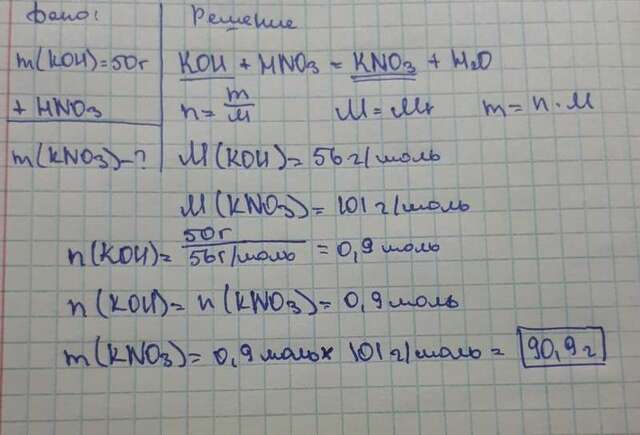 Дано:
Решение
m(KOH)=50г
+ HNO3
m(KNO3)-?
KOH + HNO3 = KNO3 + H2O
n= m/M M=Mr m=n·M
M(KOH)=56г/моль
M(KNO3)=101г/моль
n(KOH)= 50г/56г/моль =0,9моль
n(KOH)=n(KNO3)=0,9моль
m(KNO3)=0,9моль× 101г/моль= 90,9г